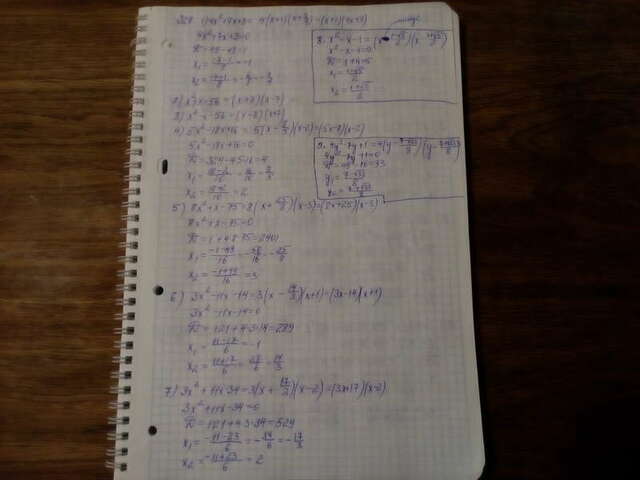 1) 4x²+7x+3= 4(x+1)(x+3/4)=(x+1)(4x+3)
4x²+7x+3=0
D=49-48=1
x₁=(-7-1)/8=-1
x₂=(-7+1)/8=-6/8=-3/4
2) x²+x-56=(x+8)(x-7)
3) x²-x-56=(x-8)(x+7)
4) 5x²-18x+16=5(x-8/5)(x-2)=(5x-8)(x-2)
5x²-18x+16=0
D=324-4·5·16=4
x₁=(18-2)/10=16/10=8/5
x₂=(18+2)/10=2
5) 8x²+x-75=8(x+25/8)(x-3)=(8x+25)(x-3)
8x²+x-75=0
D=1+4·8·75=2401
x₁=(-1-49)/16=-50/16=-25/8
x₂=(-1+49)/16=3
6) 3x²-11x-14=3(x-14/3)(x+1)=(3x-14)(x+1)
3x²-11x-14=0
D=121+4·3·14=289
x₁=(11-17)/6=-1
x₂=(11+17)/6=28/6=14/3
7) 3x²+11x-34=3(x+17/3)(x-2)=(3x+17)(x-2)
3x²+11x-34=0
D=121+4·3·34=529
x₁=(-11-23)/6=-34/6=-17/3
x₂=(-11+23)/6=2
минус
8. x²-x-1=(x-(1-√5)/2)(x-(1+√5)/2)
x²-x-1=0
D=1+4=5
x₁=(1-√5)/2
x₂=(1+√5)/2